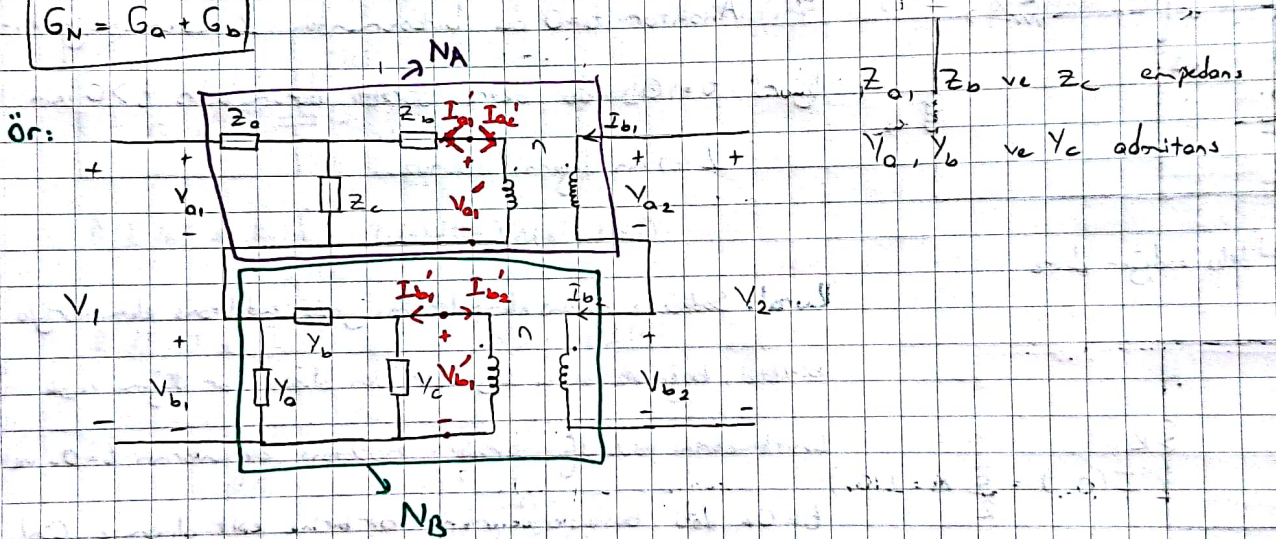 G_N = G_a + G_b
N_A
Z_a, Z_b ve Z_c empedans
Y_a, Y_b ve Y_c admitans
Ör:
Z_a
Z_b
I_a1'
I_a2'
n
I_b1
+
+
+
+
+
V_a1
Z_c
V_a1'
V_a2
-
-
-
V_1
I_b1'
I_b2'
n
I_b2
V_2
+
Y_b
+
+
V_b1
Y_a
Y_c
V_b1'
V_b2
-
-
-
-
-
N_B